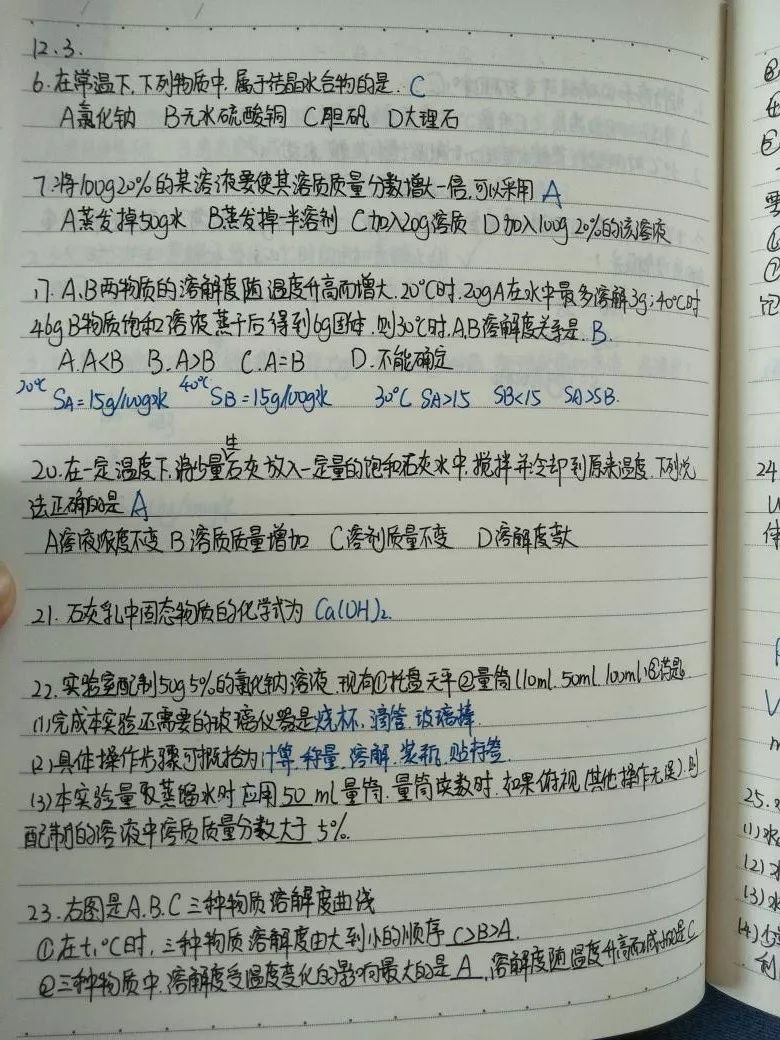 12.3.
6.在常温下,下列物质中,属于结晶水合物的是. C
A氯化钠 B无水硫酸铜 C胆矾 D大理石
7.将100g20%的某溶液要使其溶质质量分数增大一倍,可以采用 A
A蒸发掉50g水 B蒸发掉一半溶剂 C加入20g溶质 D加入100g 20%的该溶液
17. A、B两物质的溶解度随温度升高而增大.20℃时.20gA在水中最多溶解3g;40℃时
46gB物质饱和溶液蒸干后得到6g固体.则30℃时,A、B溶解度关系是. B.
A.A<B B.A>B C.A=B D.不能确定
20℃ SA=15g/100g水 40℃ SB=15g/100g水 30℃ SA>15 SB<15 SA>SB.
生
20.在一定温度下,将少量石灰放入一定量的饱和石灰水中,搅拌并冷却到原来温度.下列说
法正确的是 A
A溶液浓度不变 B溶质质量增加 C溶剂质量不变 D溶解度变大
21.石灰乳中固态物质的化学式为 Ca(OH)2.
22.实验室配制50g5%的氯化钠溶液.现有①托盘天平②量筒(10ml.50ml.100ml)③药匙.
(1)完成本实验还需要的玻璃仪器是烧杯、滴管、玻璃棒.
(2)具体操作步骤可概括为计算.称量.溶解.装瓶.贴标签.
(3)本实验量取蒸馏水时应用50 ml量筒.量筒读数时.如果俯视(其他操作无误).则
配制的溶液中溶质质量分数大于5%.
23.右图是A.B.C三种物质溶解度曲线
①在t1℃时,三种物质溶解度由大到小的顺序 C>B>A.
②三种物质中.溶解度受温度变化的影响最大的是 A .溶解度随温度升高而减小的是C
24
25.
(1)水
(2)
(3)水
(4)